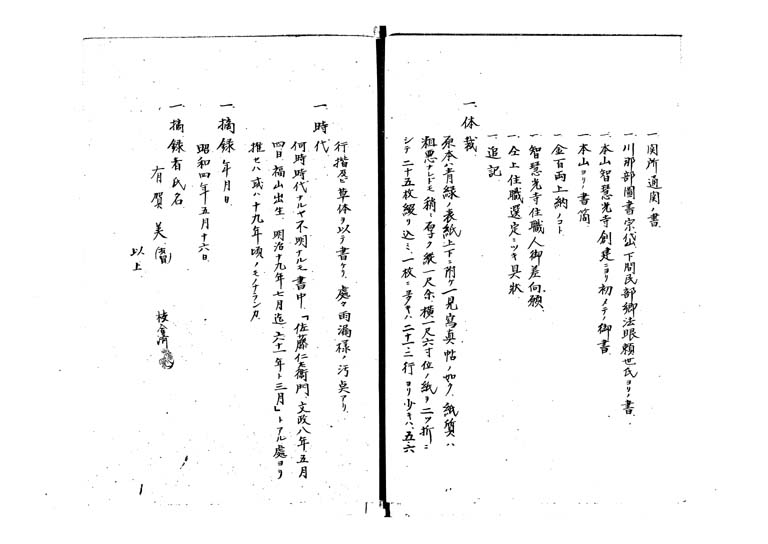 一、関所通関ノ書
一、川那部圖書宗岱、下間民部卿法眼頼世氏ヨリノ書
一、本山智慧光寺創建ニヨリ初メテノ御書
一、本山ヨリノ書簡
一、金百両上納ノコト
一、智慧光寺住職人御差向願、
一、仝上住職選定ニツキ具状
一、追記
一、体裁
原本ハ青緑ノ表紙上下ニ附ケ一見寫真帖ノ如ク、紙質ハ
粗悪ナレドモ稍々厚ク縦一尺余、横一尺六寸位ノ紙ヲ二ツ折ニ
シテ二十五枚綴リ込ミ、一枚ニ多キハ二十二、三行ヨリ少キハ、五、六
行楷及ビ草体ヲ以テ書ケリ、處々雨漏様ノ汚点アリ、
一、時代
何時時代ナルヤ不明ナルモ書中、「佐藤仁左衛門、文政八年五月
四日、福山出生、明治十九年七月迄、六十一年ト三月」トアル處ヨリ
推セバ或ハ十九年頃ノモノナランカ
一、摘録年月日、
昭和四年五月十六日、
一、摘録者氏名、
有賀美
以上